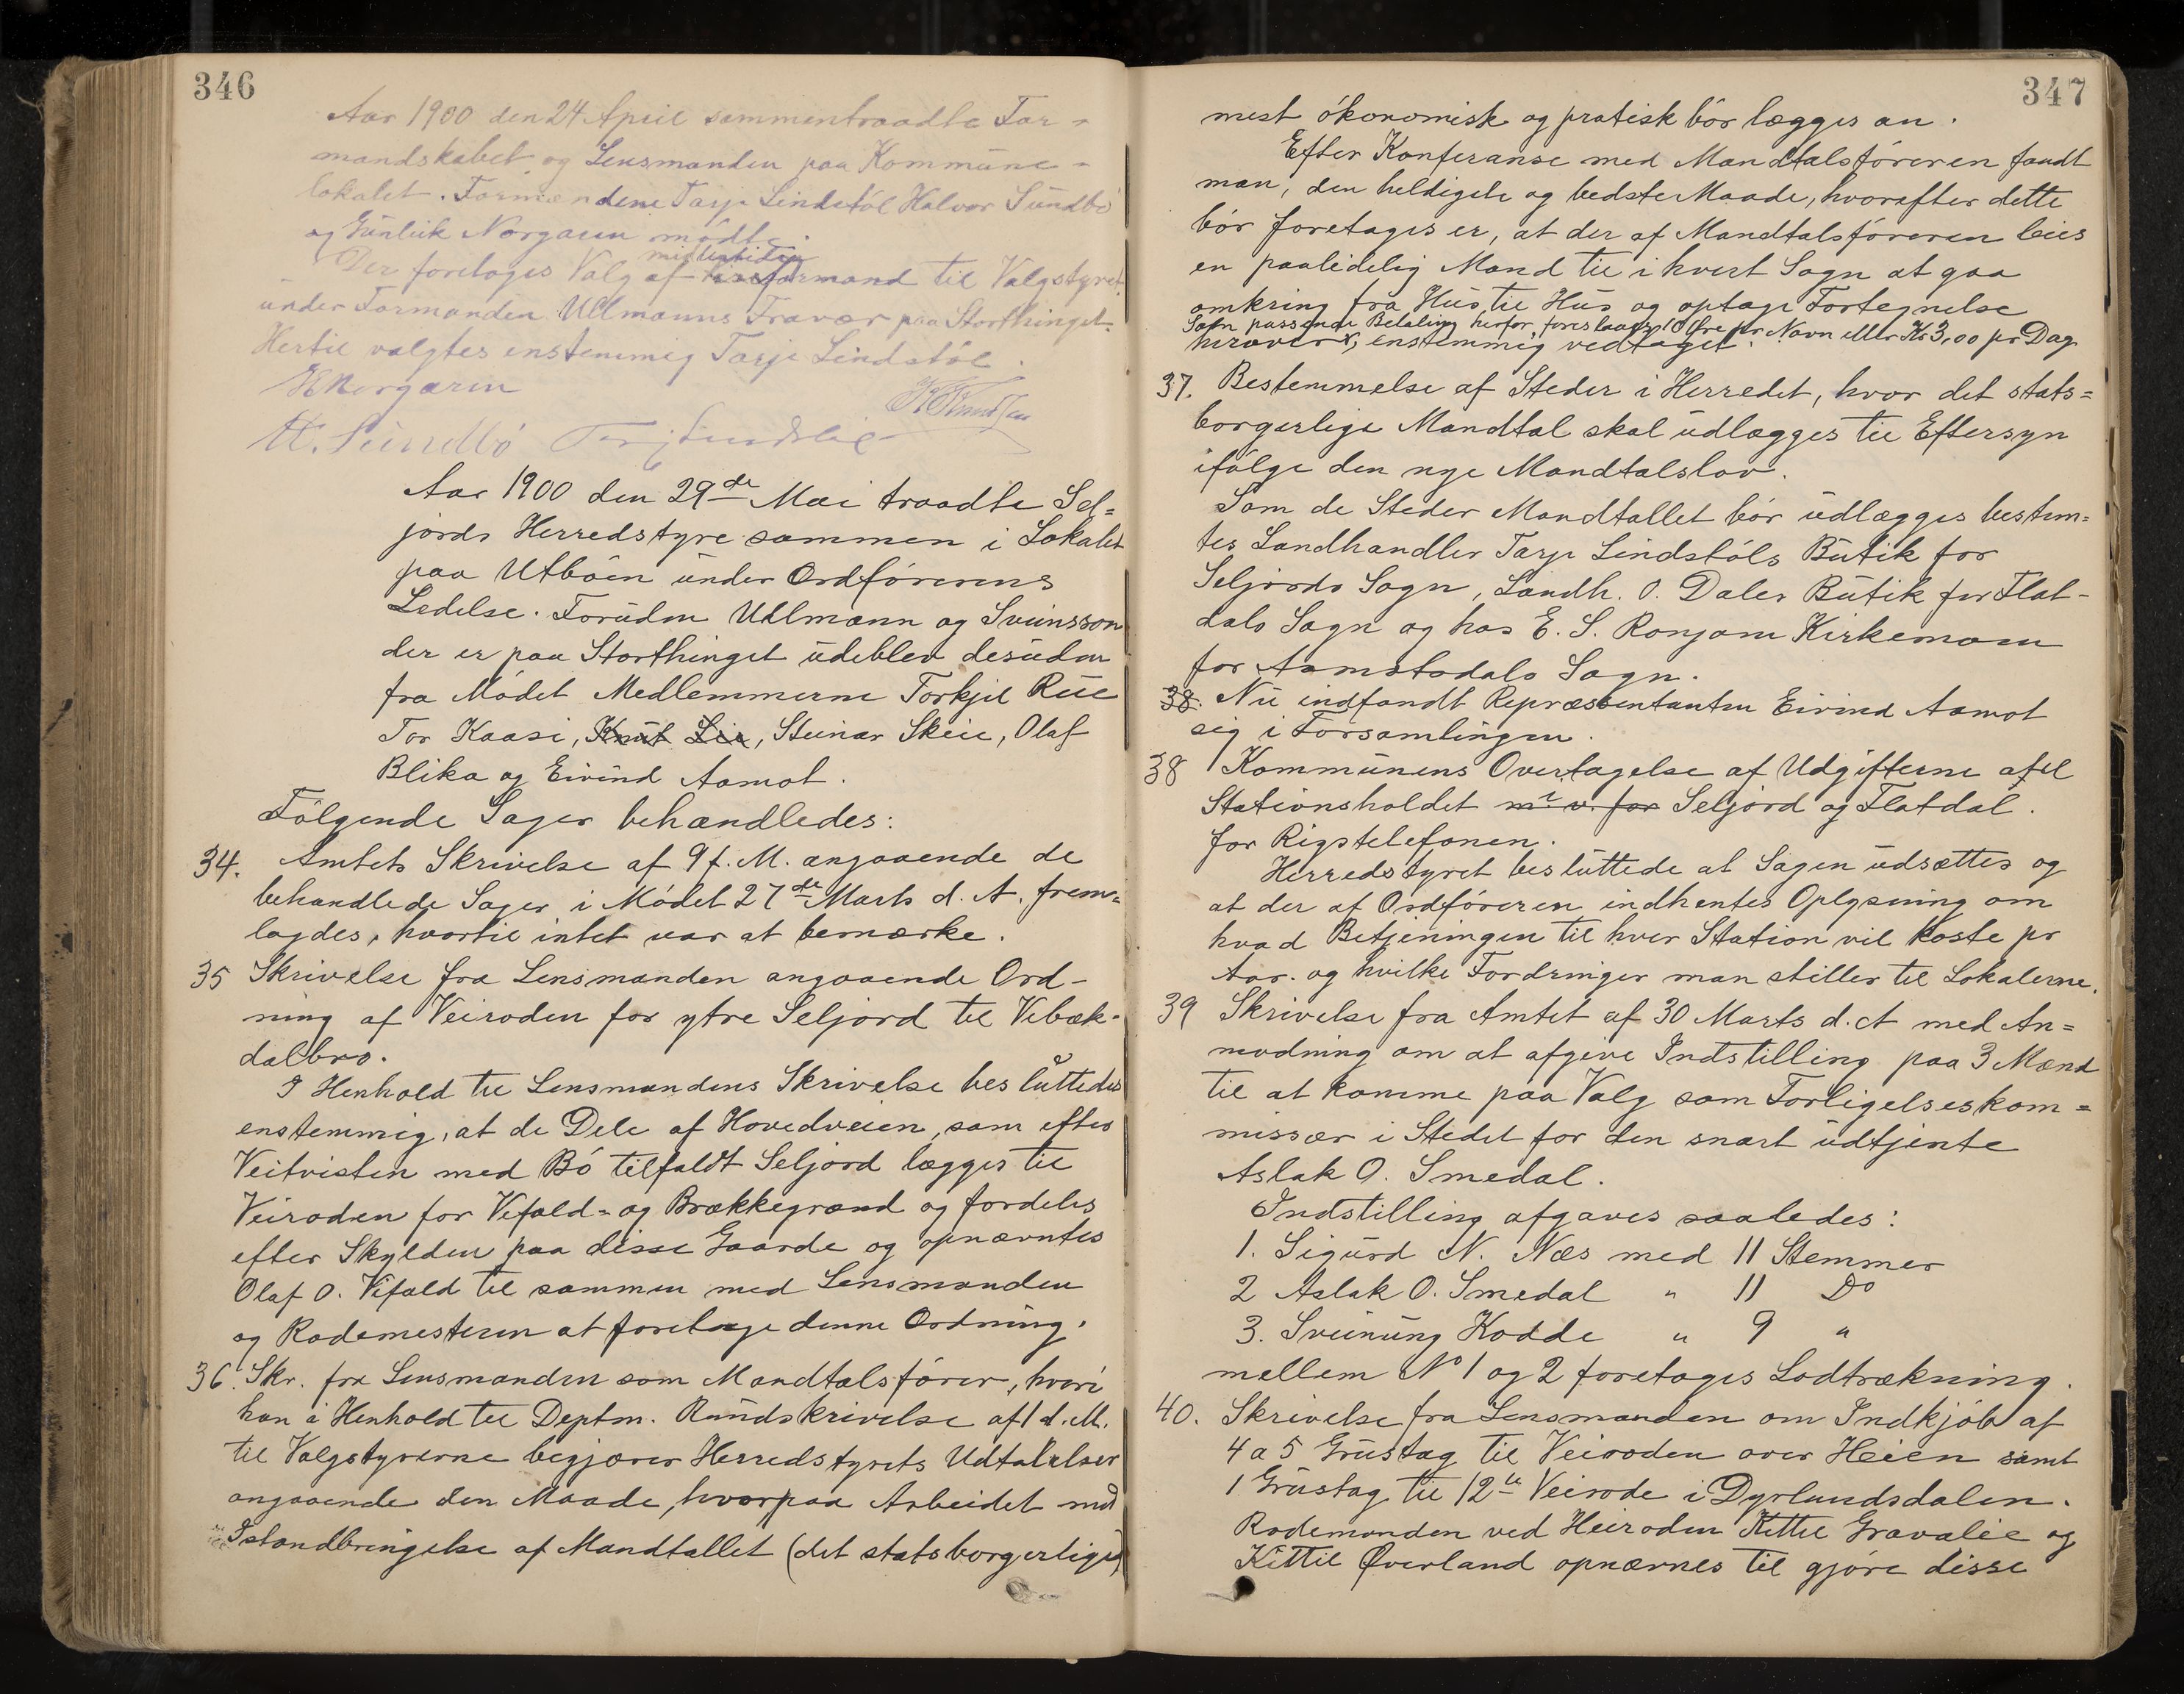 346
Aar 1900 den 24 April sammentraadte For-
mandskabet og Lensmanden paa Kommune-
lokalet. Formændene Tarje Lindstöl Halvor Sundbö
og Gunleik Norgaren mödte.
midlertidig
Der foretoges Valg af formand til Valgstyret
under Formanden Ullmanns Fravær paa Storthinget.
Hertil valgtes enstemmig Tarje Lindstöl.
Norgaren
H. Sundbö Tarj Lindstöl
Aar 1900 den 29de Mai traadte Sel=
jords Herredstyre sammen i Lokalet
paa Utböen under Ordförerens
Ledelse. Foruden Ullmann og Sveinsson
der er paa Storthinget udeblev desuden
fra Mödet Medlemmerne Torkjil Rue
Tor Kaasi, Knut Lie, Steinar Skeie, Olaf
Blika og Eivind Aamot.
Fölgende Sager behandledes:
34. Amtets Skrivelse af 9 f. M. angaaende de
behandlede Sager i Mödet 27de Marts d. A. frem=
lagdes, hvortil intet var at bemærke.
35 Skrivelse fra Lensmanden angaaende Ord-
ning af Veiroden for ytre Seljord til Vebæk-
dalbro.
I Henhold til Lensmandens Skrivelse besluttedes
enstemmig, at de Dele af Hovedveien, som efter
Veitvisten med Bö tilfaldt Seljord lægges til
Veiroden for Vefald- og Brækkegrænd og fordeles
efter Skylden paa disse Gaarde og opnævntes
Olaf O. Vefald til sammen med Lensmanden
og Rodemesteren at foretage denne Ordning.
36. Skr. fra Lensmanden som Mandtalsförer, hvori
han i Henhold til Deptm. Rundskrivelse af 1 d. M.
til Valgstyrerne begjærer Herredstyrets Udtalelser
angaaende den Maade, hvorpaa Arbeidet med
Istandbringelse af Mandtallet (det statsborgerlige)
347
mest ökonomisk og pratisk bör lægges an.
Efter Konferanse med Mandtalsföreren fandt
man, den heldigste og bedste Maade, hvorefter dette
bör foretages er, at der af Mandtalsföreren leies
en paalidelig Mand til i hvert Sogn at gaa
omkring fra Hus til Hus og optage Fortegnelse
Som passende Betaling herfor foreslaaes 10 Öre pr Navn eller Kr 3,00 pr Dag
herover, enstemmig vedtaget.
37. Bestemmelse af Steder i Herredet, hvor det stats=
borgerlige Mandtal skal udlægges til Eftersyn
ifölge den nye Mandtalslov.
Som de Steder Mandtallet bör udlægges bestem=
tes Landhandler Tarje Lindstöls Butik for
Seljords Sogn, Landh. O. Dales Butik for Flat-
dals Sogn og hos E. S. Ronjom Kirkemoen
for Aamotsdals Sogn.
38. Nu indfandt Repræsentanten Eivind Aamot
sig i Forsamlingen.
38 Kommunens Overtagelse af Udgifterne af
Stationsholdet m. v. for Seljord og Flatdal.
for Rigstelefonen.
Herredstyret besluttede at Sagen udsættes og
at der af Ordföreren indhentes Oplysning om
hvad Betjeningen til hver Station vil koste pr
Aar. og hvilke Fordringer man stiller til Lokalerne.
39 Skrivelse fra Amtet af 30 Marts d. A med An=
modning om at afgive Indstilling paa 3 Mænd
til at komme paa Valg som Forligelseskom=
missær i Stedet for den snart udtjente
Aslak O. Smedal.
Indstilling afgaves saaledes:
1. Sigurd N. Næs med 11 Stemmer
2 Aslak O. Smedal " 11 Do
3. Sveinung Kodde " 9 "
mellem No 1 og 2 foretoges Lodtrækning.
40. Skrivelse fra Lensmanden om Indkjöb af
4 a 5 Grustag til Veiroden over Heien samt
1 Grustag til 12te Veirode i Dyrlandsdalen.
Rodemanden ved Heiroden Kittil Gravalie og
Kittil Øverland opnævnes til gjöre disse